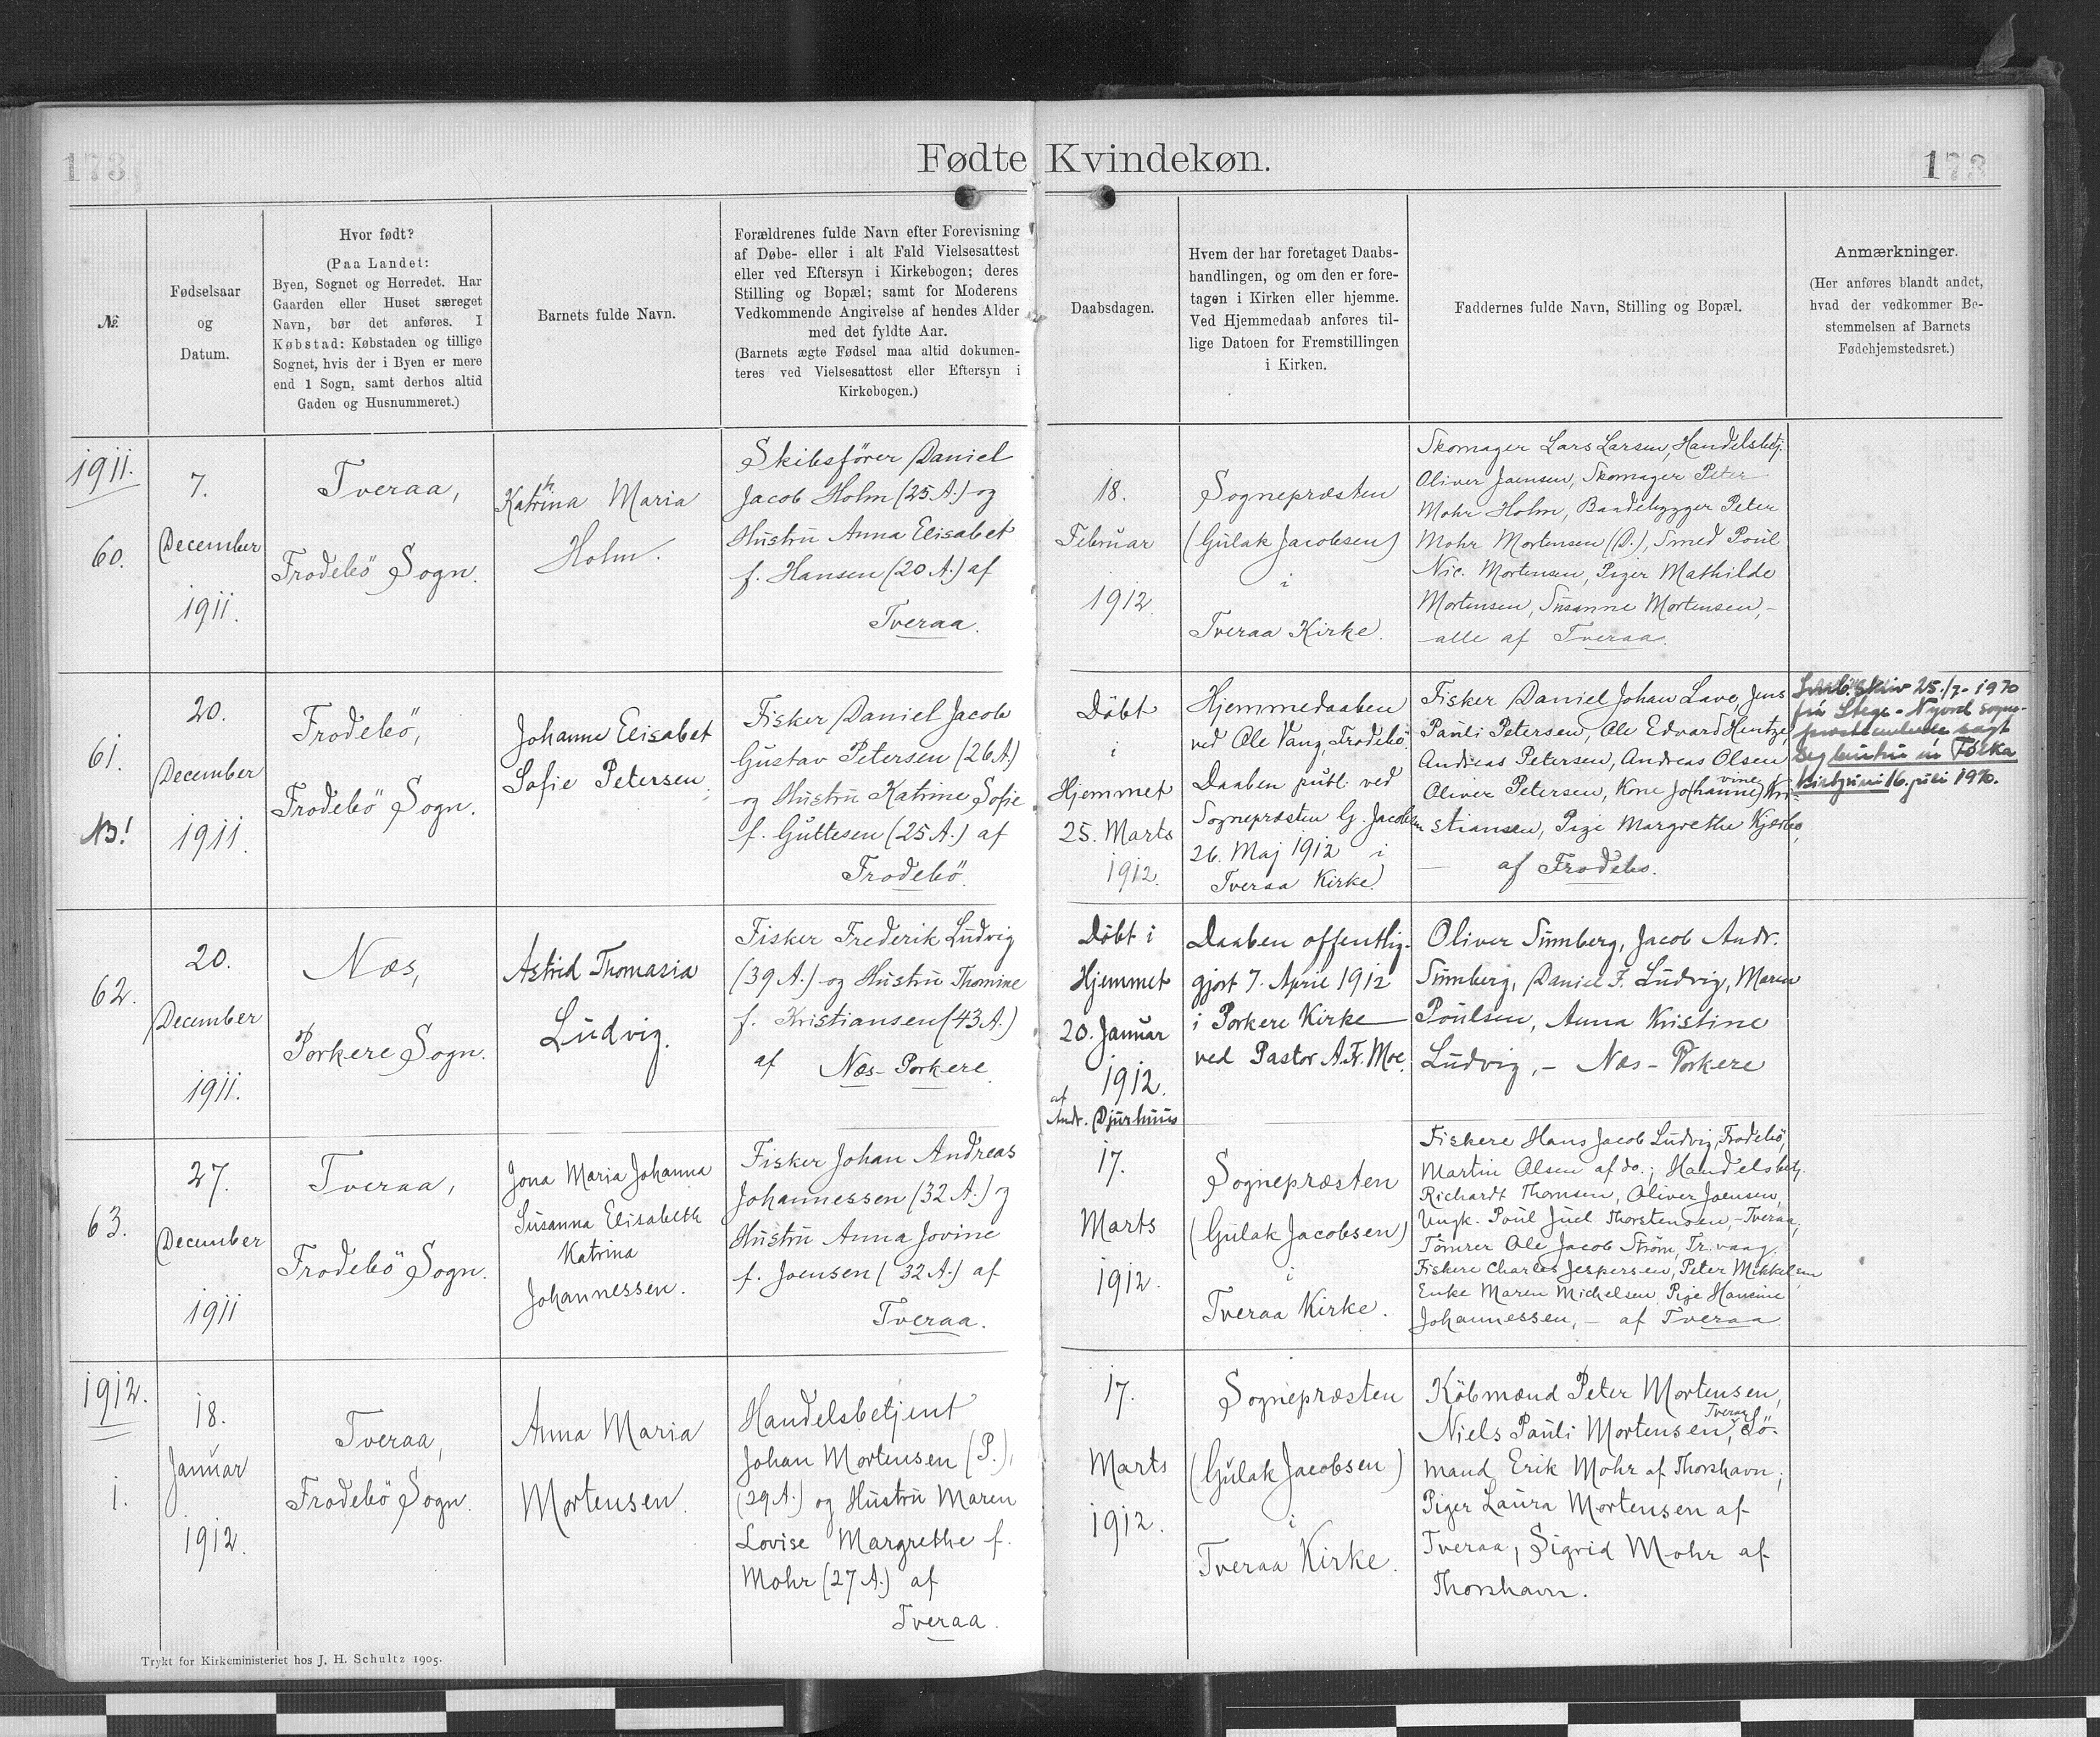 173
Fødte Kvindekøn.
173
№
Fødselsaar
og
Datum.
Hvor født?
(Paa Landet:
Byen, Sognet og Herredet. Har
Gaarden eller Huset særeget
Navn, bør det anføres. I
Købstad: Købstaden og tillige
Sognet, hvis der i Byen er mere
end 1 Sogn, samt derhos altid
Gaden og Husnummeret.)
Barnets fulde Navn.
Forældrenes fulde Navn efter Forevisning
af Døbe- eller i alt Fald Vielsesattest
eller ved Eftersyn i Kirkebogen; deres
Stilling og Bopæl; samt for Moderens
Vedkommende Angivelse af hendes Alder
med det fyldte Aar.
(Barnets ægte Fødsel maa altid dokumen-
teres ved Vielsesattest eller Eftersyn i
Kirkebogen.)
Daabsdagen.
Hvem der har foretaget Daabs-
handlingen, og om den er fore-
tagen i Kirken eller hjemme.
Ved Hjemmedaab anføres til-
lige Datoen for Fremstillingen
i Kirken.
Faddernes fulde Navn, Stilling og Bopæl.
Anmærkninger.
(Her anføres blandt andet,
hvad der vedkommer Be-
stemmelsen af Barnets
Fødehjemstedsret.)
1911.
60.
7.
December
1911.
Tveraa,
Frodebö Sogn.
h
Katrina Maria
Holm.
Skibsfører Daniel
Jacob Holm (25 A.) og
Hustru Anna Elisabet
f. Hansen (20 A.) af
Tveraa.
18.
Februar
1912.
Sognepræsten
(Gulak Jacobsen)
i
Tveraa Kirke.
Skomager Lars Larsen, Handelsbetj.
Oliver Joensen, Skomager Peter
Mohr Holm, Baadebygger Peter
Mohr Mortensen (D.), Smed Poul
Nic. Mortensen, Piger Mathilde
Mortensen, Susanne Mortensen, -
alle af Tveraa.
61.
NB!
20.
December
1911.
Frodebö,
Frodebö Sogn.
Johanne Elisabet
Sofie Petersen.
Fisker Daniel Jacob
Gustav Petersen (26 A.)
og Hustru Katrine Sofie
f. Guttesen (25 A.) af
Frodebö.
Döbt
i
Hjemmet
25. Marts
1912.
Hjemmedaaben
ved Ole Vang, Frodebö.
Daaben publ. ved
Sognepræsten G. Jacobsen
26. Maj 1912 i
Tveraa Kirke.
Fisker Daniel Johan Lave, Jens
Pauli Petersen, Ole Edvard Hentze,
Andreas Petersen, Andreas Olsen
Oliver Petersen, Kone Jo(hanne) Kri-
vine
stiansen, Pige Margrethe Kjærbo,
af Frodebo.
skriv 25./7- 1970
frá Stege - Nyord sogne-
sagt
seg úr Fólka
kirkjuni 16. juli 1970.
62.
20.
December
1911.
Næs,
Porkere Sogn.
Astrid Thomasia
Ludvig.
Fisker Frederik Ludvig
(39 A.) og Hustru Thomine
f. Kristiansen (43 A.)
af Næs - Porkere.
Döbt i
Hjemmet
20. Januar
1912.
af
Andr. Djurhuus
Daaben offentlig-
gjort 7. April 1912
i Porkere Kirke
ved Pastor A. Fr. Moe.
Oliver Sumberg, Jacob Andr.
Sumberg, Daniel F. Ludvig, Maren
Poulsen, Anna Kristine
Ludvig, - Næs - Porkere
63.
27.
December
1911
Tveraa,
Frodebö Sogn.
Jona Maria Johanna
Susanna Elisabeth
Katrina
Johannessen.
Fisker Johan Andreas
Johannessen (32 A.) og
Hustru Anna Jovine
f. Joensen (32 A.) af
Tveraa.
17.
Marts
1912.
Sognepræsten
(Gulak Jacobsen)
i
Tveraa Kirke.
Fiskere Hans Jacob Ludvig, Frodebö,
Martin Olsen af do.; Handelsbetj.
Richardt Thomsen, Oliver Joensen,
Ungk. Poul Juel Thorstensen, - Tveraa,
Tömrer Ole Jacob Ström, Tr.vaag.
Fiskere Charles Jespersen, Peter Mikkelsen
Enke Maren Michelsen, Pige Hansine
Johannessen, - af Tveraa.
1912.
1.
18.
Januar
1912.
Tveraa,
Frodebö Sogn.
Anna Maria
Mortensen.
Handelsbetjent
Johan Mortensen (P.),
(29 A.) og Hustru Maren
Lovise Margrethe f.
Mohr (27 A.) af
Tveraa.
17.
Marts
1912.
Sognepræsten
(Gulak Jacobsen)
i
Tveraa Kirke.
Köbmænd Peter Mortensen,
Tveraa
Niels Pauli Mortensen, Sö-
mand Erik Mohr af Thorshavn;
Piger Laura Mortensen af
Tveraa, Sigrid Mohr af
Thorshavn.
Trykt for Kirkeministeriet hos J. H. Schultz 1905.